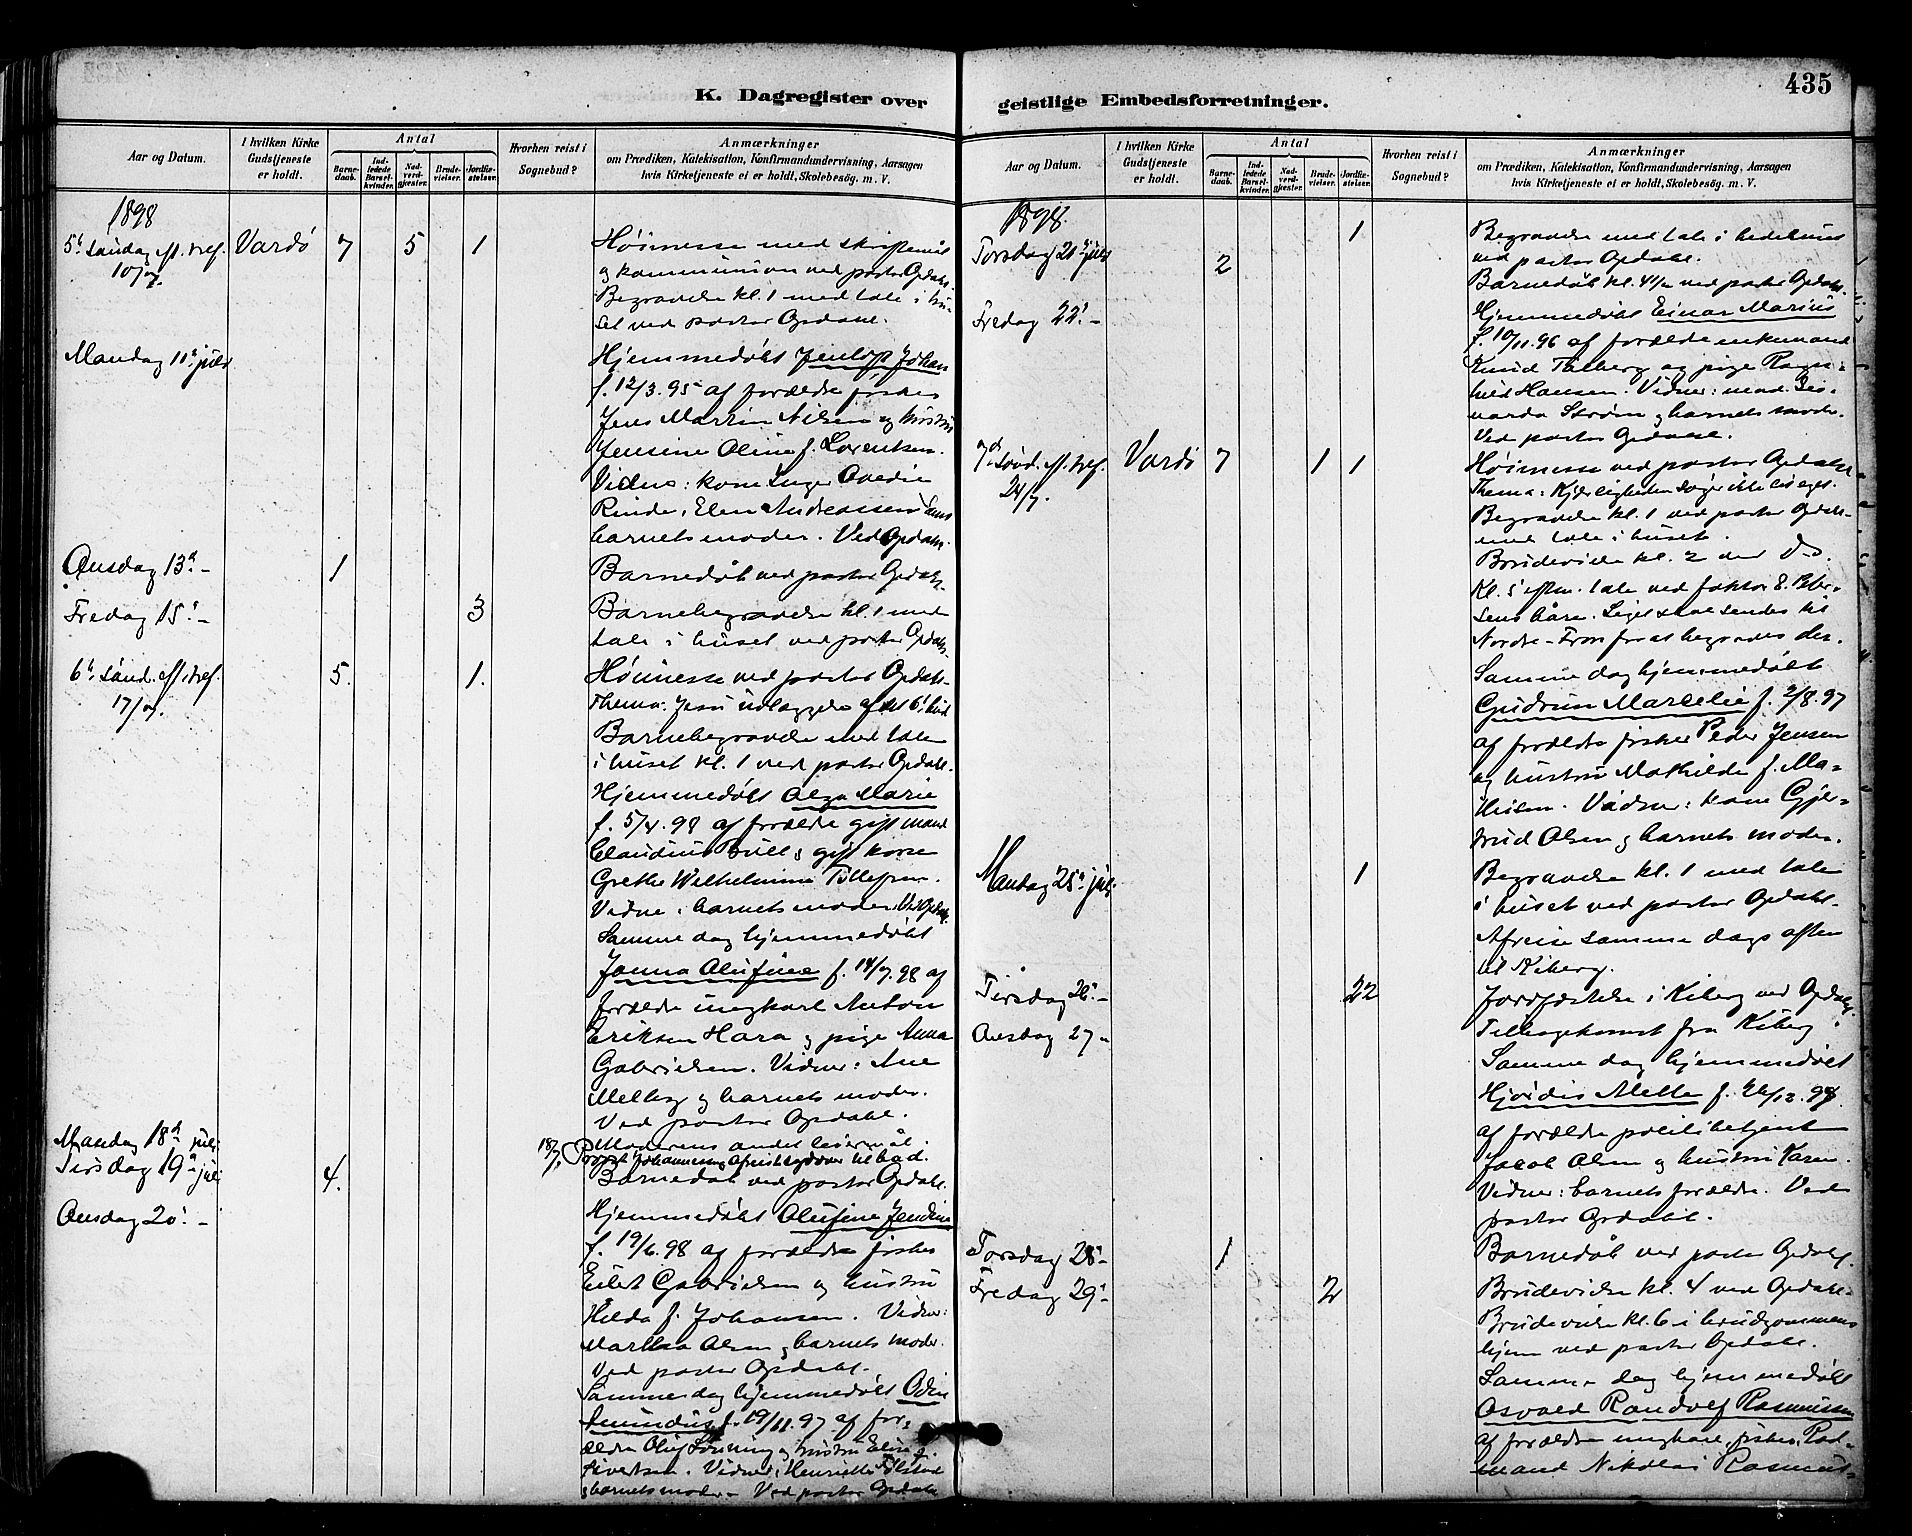 435
K. Dagregister over geistlige Embedsforretninger.
Aar og Datum.
I hvilken Kirke Gudstjeneste er holdt.
Antal
Barnedaab.
Indledede Barselkvinder.
Nadverdgjester.
Brudevielser.
Jordfæstelser.
Hvorhen reist i Sognebud?
Anmærkninger
om Prædiken, Katekisation, Konfirmandundervisning, Aarsagen
hvis Kirketjeneste ei er holdt, Skolebesøg. m. V.
1898
5te Søndag eft. tref. 10/7. Vardø 7 5 1
Høimesse med skriftemål
og kommunion ved pastor Opdahl.
Begravelse kl. 1 med tale i hu-
set ved pastor Opdahl.
Mandag 11te juli
Hjemmedøbt Johan
f. 12/3.95 af forældre fisker
Jens Martin Nilsen og hustru
Jensine Oline f. Lorentsen.
Vidner: kone Inger
Rinde, Elen Andreassen samt
barnets moder. Ved Opdahl.
Onsdag 13de - 1
Barnedåb ved pastor Opdahl.
Fredag 15. - 3
Barnebegravelse kl. 1 med
tale i huset ved pastor Opdahl.
6te Sønd. eft. tref. 17/7. 5. 1.
Høimesse ved pastor Opdahl.
Thema: Jesu udlæggelse af det 6. bud
Barnebegravelse med tale
i huset kl. 1 ved pastor Opdahl.
Hjemmedøbt Olga Marie
f. 5/4.98 af forældre gift mand
Claudius Bull og gift kone
Grethe Wilhelmine Tollefsen.
Vidne: barnets moder. Ved Opdahl.
Samme dag hjemmedøbt
Jonna Olufine f. 14/7.98 af
forældre ungkarl Anton
Eriksen Hara og pige Anna
Gabrielsen. Vidner: Ane
Melberg og barnets moder.
Ved pastor Opdahl.
Moderens andet leiermål.
Mandag 18de juli
18/7.
Tirsdag 19de juli 4.
Barnedåb ved pastor Opdahl.
Onsdag 20. -
Hjemmedøbt Olufine Jendine
f. 19/6.98 af forældre fisker
Eilert Gabrielsen og hustru
Hilda f. Johansen. Vidner:
Martha Olsen og barnets moder.
Ved pastor Opdahl.
Samme dag hjemmedøbt Odin
Amundus f. 19/11.97 af for-
ældre Oluf og hustru Eline f.
Sivertsen. Vidner: Henriette
og barnets moder. Ved pastor Opdahl
K. Dagregister over geistlige Embedsforretninger.
Aar og Datum.
I hvilken Kirke Gudstjeneste er holdt.
Antal
Barnedaab.
Indledede Barselkvinder.
Nadverdgjester.
Brudevielser.
Jordfæstelser.
Hvorhen reist i Sognebud?
Anmærkninger
om Prædiken, Katekisation, Konfirmandundervisning, Aarsagen
hvis Kirketjeneste ei er holdt, Skolebesøg. m. V.
1898.
Torsdag 21de juli 2 1
Begravelse med tale i bedehuset
ved pastor Opdahl.
Barnedåb kl. 4½ ved pastor Opdahl.
Fredag 22. -
Hjemmedøbt Einar Marius
f. 10/11.96 af forældre enkemand
Knud og pige Ragn-
hild Hansen. Vidner:
Strøm og barnets moder.
Ved pastor Opdahl.
7de Sønd. eft. tref. 24/7. Vardø 7 1 1
Høimesse ved pastor Opdahl
Thema: Kjærligheden søger ikke sit eget.
Begravelse kl. 1 ved pastor Opdahl
med tale i huset.
Brudevielse kl. 2 ved Do.
Kl. 5 efterm. tale ved faktor E. Peter-
sens båre. Liget skal sendes til
Nordre-Fron for at begraves der.
Samme dag hjemmedøbt
Gudrun Marselie f. 2/8.97
af forældre fisker Peder Jensen
og hustru Mathilde f. Ma-
thisen. Vidner: kone Gjer-
trud Olsen og barnets moder.
Mandag 25de juli 1
Begravelse kl. 1 med tale
i huset ved pastor Opdahl.
Afreise samme dags aften
til Kiberg.
Tirsdag 26. - 22
Jordfæstelse i Kiberg ved Opdahl.
Onsdag 27. -
Tilbagekomst fra Kiberg.
Samme dag hjemmedøbt
Hjørdis Mette f. 26/12.97
af forældre politibetjent
Jacob Olsen og hustru Karen.
Vidner: barnets forældre. Ved
pastor Opdahl.
Torsdag 28. - 1
Barnedåb ved pastor Opdahl.
Fredag 29. - 2
Brudevielse kl. 4 ved Opdahl.
Brudevielse kl. 6 i brudgommens
hjem ved pastor Opdahl.
Samme dag hjemmedøbt
Osvald Randolf Rasmussen
af forældre ungkarl, fisker
Nikolai Rasmus-